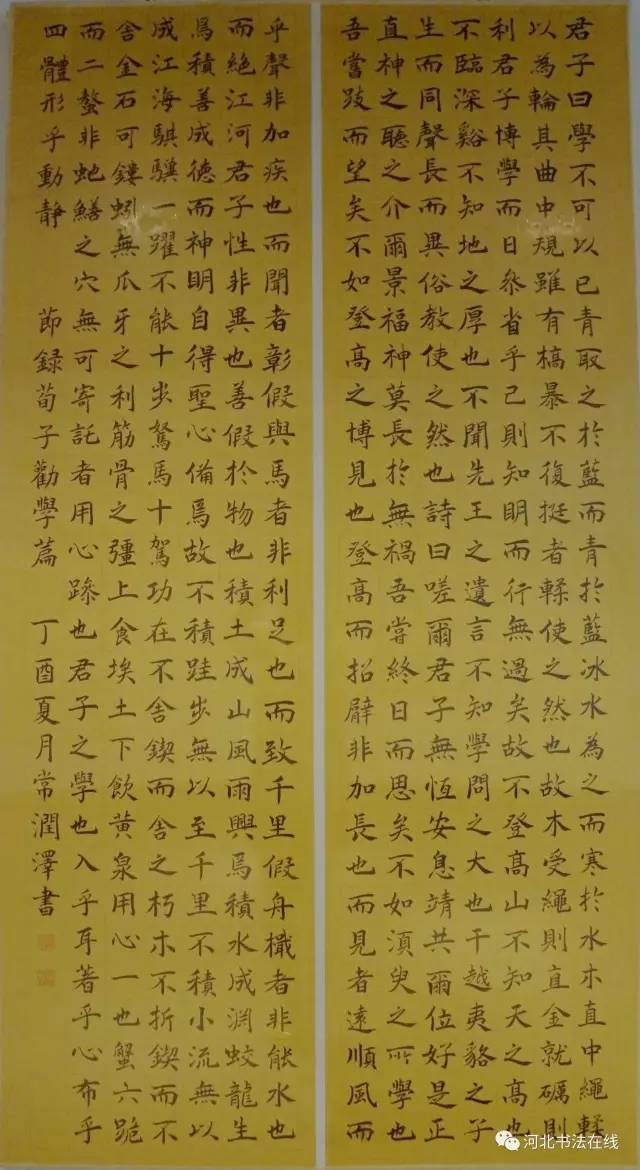 君子曰學不可以已青取之於藍而青於藍冰水為之而寒於水木直中繩輮
以為輪其曲中規雖有槁暴不復挺者輮使之然也故木受繩則直金就礪則
利君子博學而日叅省乎己則知明而行無過矣故不登髙山不知天之髙也
不臨深谿不知地之厚也不聞先王之遺言不知學問之大也干越夷貉之子
生而同聲長而異俗教使之然也詩曰嗟爾君子無恆安息靖共爾位好是正
直神之聽之介爾景福神莫長於無禍吾甞終日而思矣不如須臾之所學也
吾嘗跂而望矣不如登髙之博見也登髙而招臂非加長也而見者遠順風而
乎聲非加疾也而聞者彰假與馬者非利足也而致千里假舟檝者非能水也
而絶江河君子性非異也善假於物也積土成山風雨興焉積水成淵蛟龍生
焉積善成德而神明自得聖心備焉故不積跬步無以至千里不積小流無以
成江海騏驥一躍不能十步駑馬十駕功在不舍鍥而舍之朽木不折鍥而不
舍金石可鏤蚓無爪牙之利筋骨之彊上食埃土下飲黄泉用心一也蟹六跪
而二螯非虵鱔之穴無可寄託者用心躁也君子之學也入乎耳著乎心布乎
四體形乎動靜 節録荀子勸學篇 丁酉夏月常潤澤書
河北书法在线